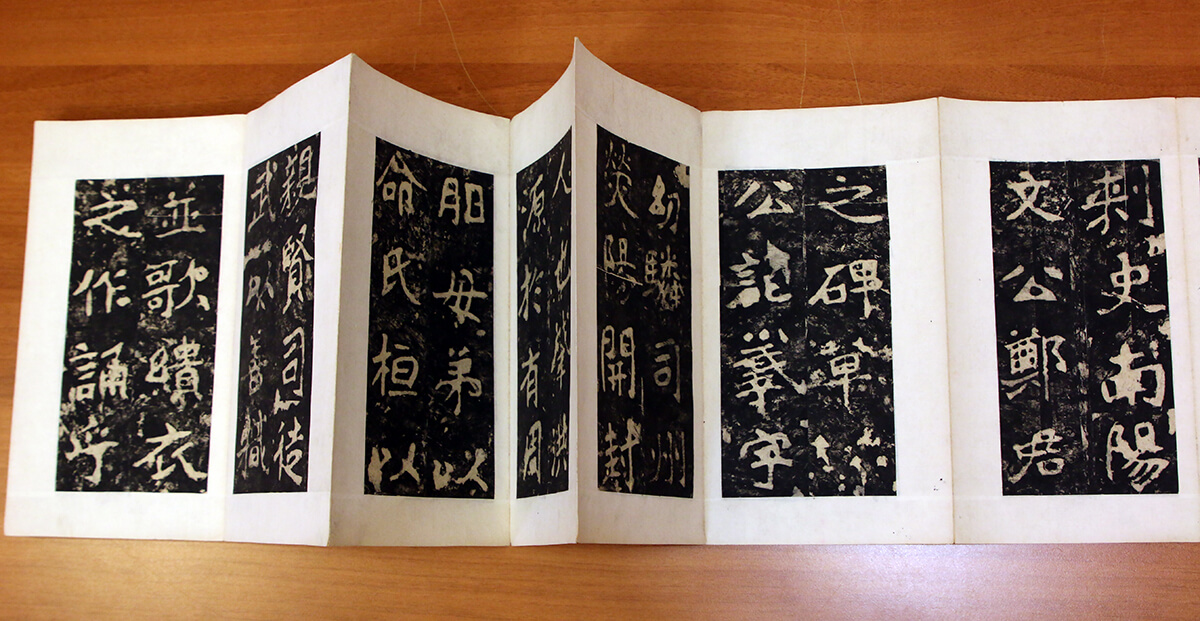 刺史南陽
文公鄭君
之碑草
公諱羲字
幼驎司州
熒陽開封
人也肇洪
源於有周
胙母弟以
命氏桓以
親賢司徒
武以善職
並歌緇衣
之作誦乎